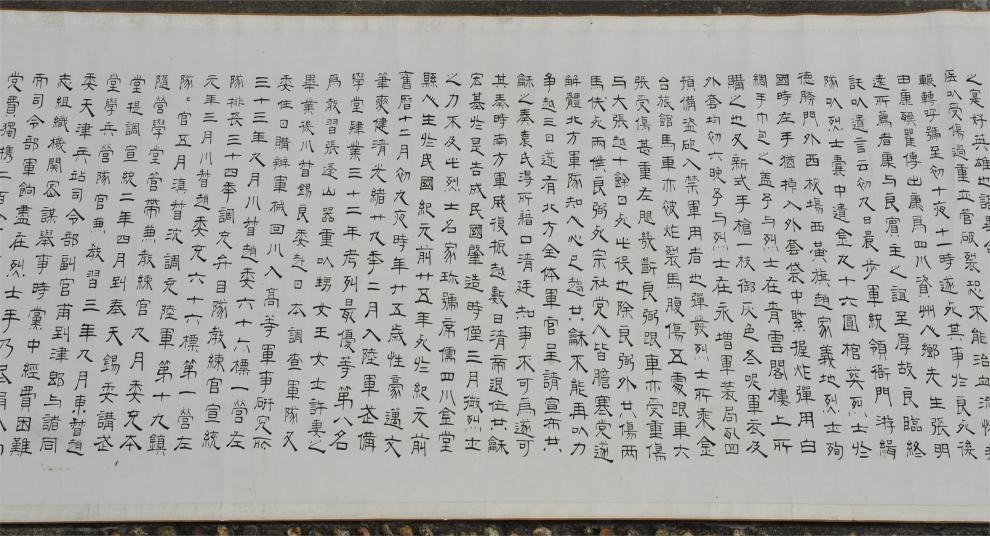 之寔好英雄也語畢
医以受傷過重立官破裂恐不能治血流
輾轉呼號至初十夜十一時遂死其事於良死後
由廉礦翟傳出廉爲四川資州人鄉先生張明
遠所薦者廉与良賓主之誼至厚故良臨終
託以遺言云初九日晨步軍統領衙門游緝
隊以烈士囊中遺金九十六圓棺葬烈士於
德勝門外西校場西黃旗趙家義地烈士殉
國時左手猶揷入外套袋中緊握炸彈用白
綢手巾包之蓋予与烈士在青雲閣樓上所
購之也又新式手槍一枝御灰色冬呢軍衣及
外套均初六晚予与烈士在永增軍裝局所
預備盜砍入禁軍用者也彈發烈士所乘金
台旅館馬車亦彼炸裂馬腹傷五處跟車大
張受傷甚重左腿幾斷良弼跟車亦受重傷
与大張越十餘日死此役也除良弼外共傷兩
馬伕死兩僕良弼死宗社党人皆膽塞党遂
解體北方軍隊知人心已趨共龢不能再以力
争越三日遂有北方全体軍官呈請宣布共
龢之奏袁氏得所藉口清廷知事不可爲遂可
其奏時南方軍威復振越數日清帝退位共龢
宏基於是告成民國肇造時僅三月微烈士
之力不及此烈士名家珍號席儒四川金堂
縣人生於民國紀元前廿五年死於紀元前
舊曆十二月初九夜時年廿五歲性豪邁文
筆爽健清光緒廿九季二月入陸軍武備
學堂肄業三十二年考列最優等第八名
爲教習張遂山器重以甥女王女士許妻之
畢業後川督錫良委赴日本調查軍隊又
委住日購辦軍械回川入高等軍事研究所
三十三年九月川督趙委六十六標一營左
隊排長三十四季調充弁目隊教練官宣統
元年三月川督趙委充六十六標第一營左
隊〻官五月滇督沈調充陸軍第十九鎮
隨營學堂管帶兼教練官九月委充本
堂提調宣統二年四月到奉天錫委講武
堂學兵營隊官兼教習三年九月東督趙
委天津兵站司令部副官甫到津郎与諸同
志組織機關密謀舉事時黨中經費困難
而司令部軍餉盡在烈士手乃尽捐入
党費獨携二百金